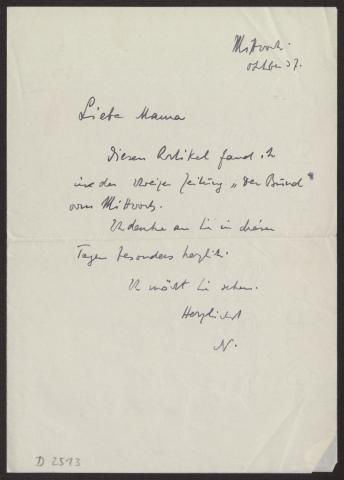 Mittwoch.
Oktober 37.
Liebe Mama
diesen Artikel fand ich
in der Zeitung „Der Bund“
vom Mittwoch.
Ich denke an Sie in diesen
Tagen besonders herzlich.
Ich möcht Sie sehen.
Herzlichst
N.
D 2513